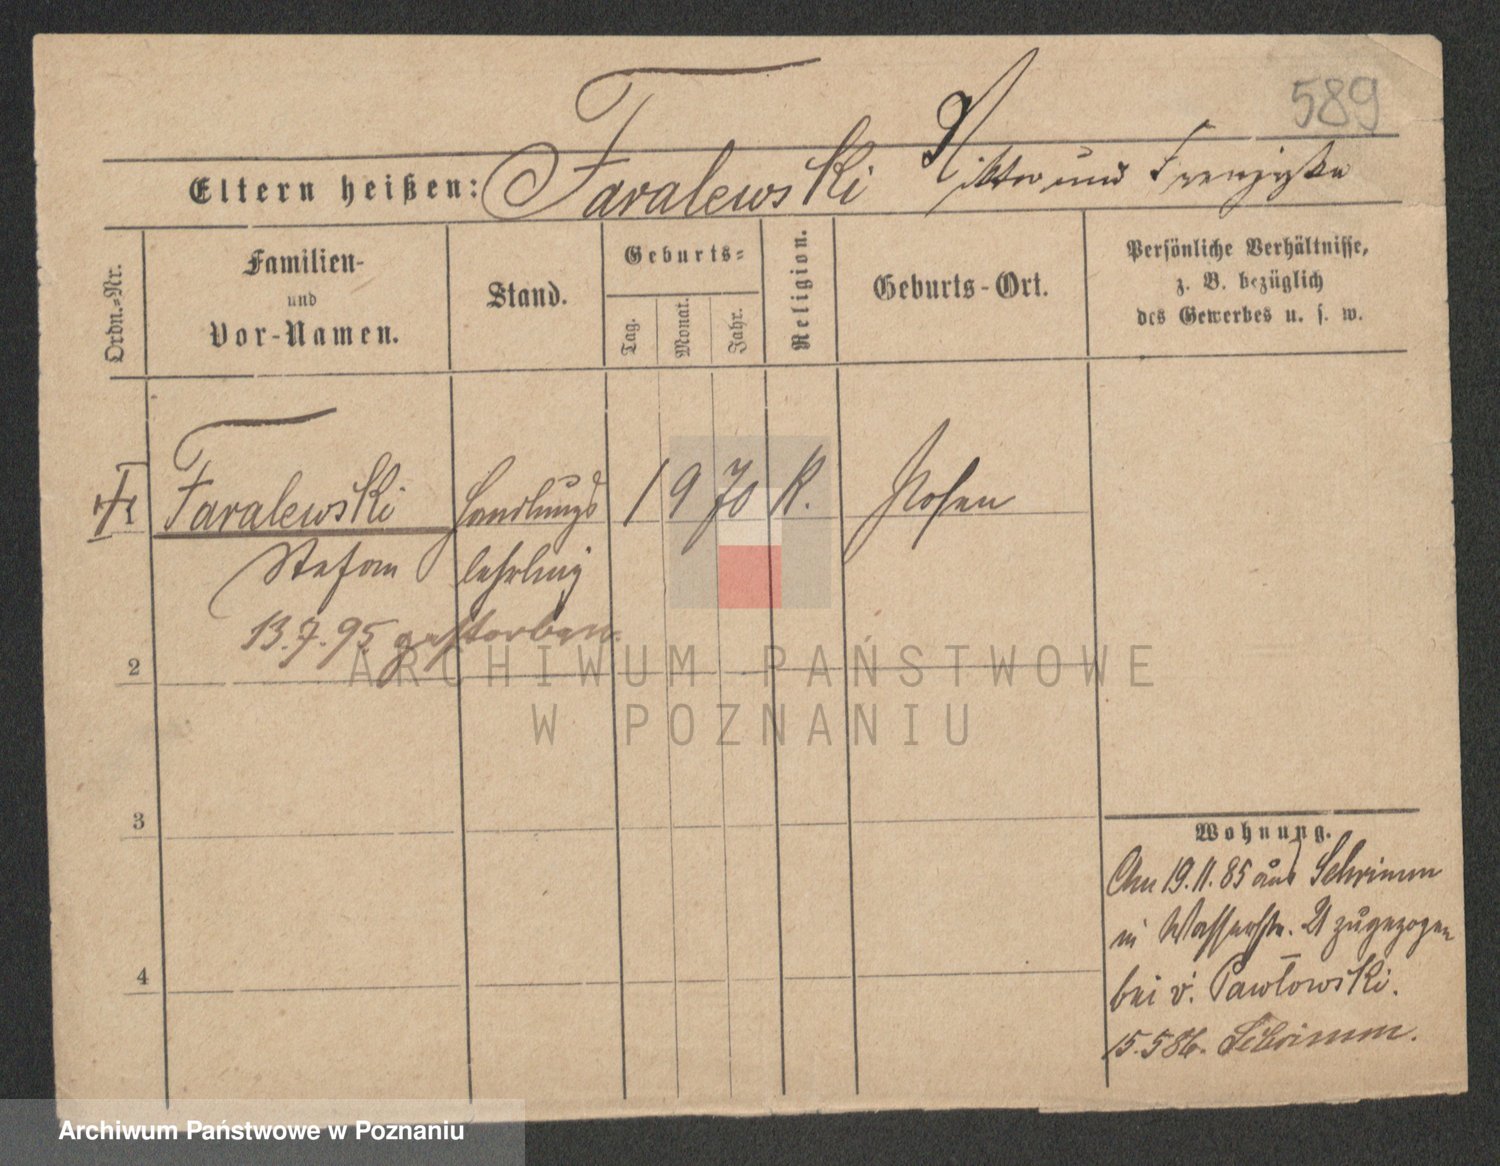 589
Eltern heißen: Faralewski Viktor und Franziska
Ordn.-Nr.
Familien-
und
Vor-Namen.
Stand.
Geburts-
Tag.
Monat.
Jahr.
Religion.
Geburts-Ort.
Persönliche Verhältnisse,
z. B. bezüglich
des Gewerbes u. s. w.
Faralewski Handlungs 1 9 70 K. Posen
Stefan lehrling
13.7.95 gestorben.
2
3
4
Wohnung.
Am 19.11.85 aus Schrimm
in Wasserstr. 21 zugezogen
bei v. Pawłowski.
15.5 86. Schrimm.
ARCHIWUM PAŃSTWOWE
W POZNANIU
Archiwum Państwowe w Poznaniu